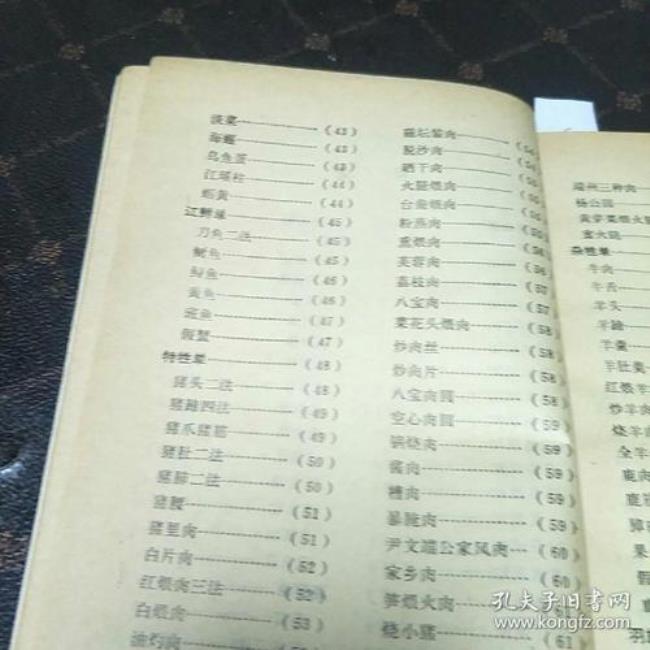 淡菜 (43)
海蝘 (43)
乌鱼蛋 (43)
江瑶柱 (44)
蛎黄 (44)
江鲜单 (45)
刀鱼二法 (45)
鲥鱼 (45)
鲟鱼 (46)
黄鱼 (46)
班鱼 (47)
假蟹 (47)
特牲单 (48)
猪头二法 (48)
猪蹄四法 (49)
猪爪猪筋 (49)
猪肚二法 (50)
猪肺二法 (50)
猪腰 (51)
猪里肉 (51)
白片肉 (52)
红煨肉三法 (52)
白煨肉 (53)
油灼肉
磁坛装肉
脱沙肉
晒干肉
火腿煨肉
台鲞煨肉
粉蒸肉
熏煨肉
芙蓉肉 (56)
荔枝肉 (57)
八宝肉 (57)
菜花头煨肉 (58)
炒肉丝 (58)
炒肉片 (58)
八宝肉圆 (58)
空心肉圆 (59)
锅烧肉 (59)
酱肉 (59)
糟肉 (59)
暴腌肉 (59)
尹文端公家风肉 (60)
家乡肉 (60)
笋煨火肉 (61)
烧小猪 (61
端州三种肉
杨公圆
黄芽菜煨火腿
蜜火腿
杂牲单
牛肉
牛舌
羊头
羊蹄
羊羹
羊肚羹
红煨羊
炒羊肉
烧羊
全羊
鹿肉
鹿
獐
果
假
羽
孔夫子旧书网
www.kongfz.com